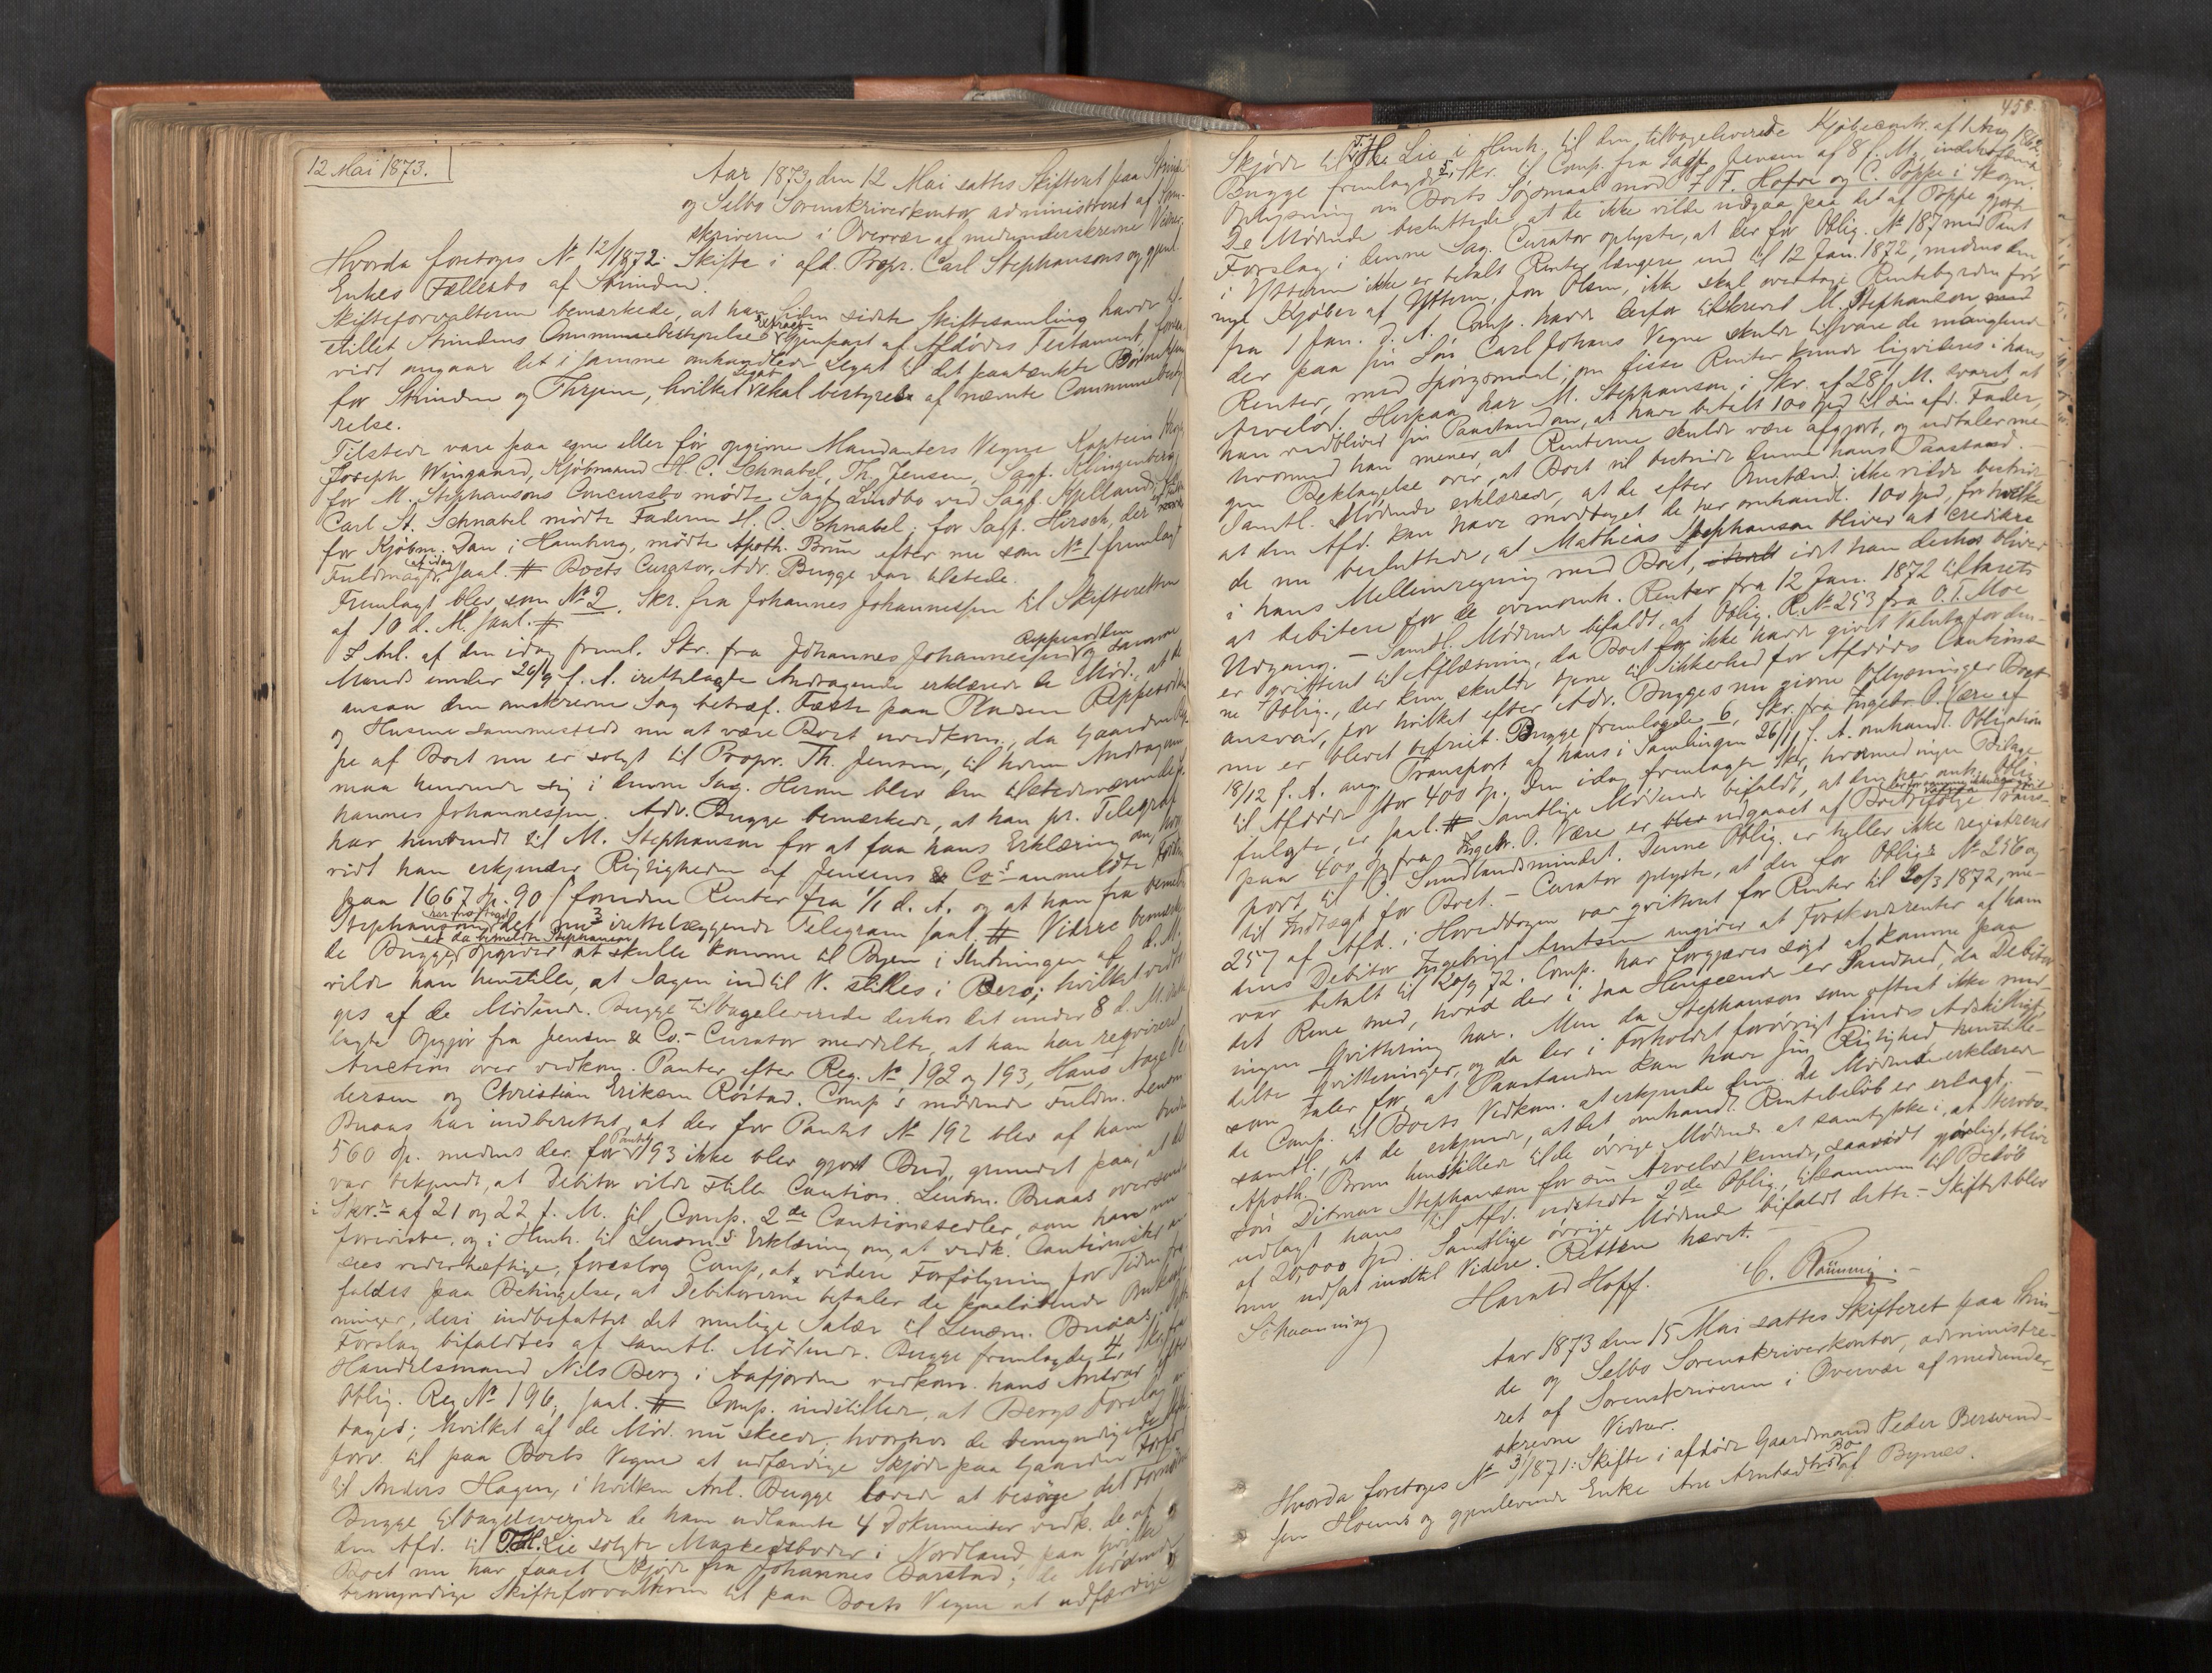 12 Mai 1873.
Aar 1873, den 12 Mai sattes Skifteret paa Strinde
og Selbo Sorenskriverkontor administreret af Soren-
skriveren i Overvær af medunderskrevne Vidner.
Hvorda foretoges No 12/1872: Skifte i afd. Propr. Carl Stephansons og gjenl.
Enkes Fællesbo af Strinden.
Skifteforvalteren bemærkede, at han siden sidste Skiftesamling havde til-
stillet Strindens Communebestyrelse Gjenpart af Afdødes Testament, forsaa-
vidt angaar det i samme omhandlede Legat til det paatænkte
for Strinden og hvilket Legat skal bestyres af nævnte Communebesty-
relse.
Tilstede vare paa egne eller før opgivne Mandanters Vegne Kaptein
Joseph Wingaard, Kjøbmand H. C. Schnabel, Th. Jensen, Sagf. Klingenberg,
for M. Stephansons Concursbo mødte Sagf. Lindbo ved Sagf. Kjelland,
Carl St. Schnabel mødte Faderen H. C. Schnabel; for Sagf. Hirsch, der
for Kjøbm. Dan i Hamburg, mødte Apoth. Brun efter nu som No 1 fremlagt
Fuldmagt af idag saal. # Boets Curator, Adv. Bugge var tilstede.
Fremlagt blev som No 2, Skr. fra Johannes Johannessen til Skifteretten
af 10 d. M. saal. #
I Anl. af den idag freml. Skr. fra Johannes Johannessen og samme
Mands under 26/9 f. A. irettelagte Andragende erklærede de Mød., at de
ansaa den omskrevne Sag betræf. Fæste paa Pladsen
og Husene sammesteds nu at være Boet uvedkom., da Gaarden
pe af Boet nu er solgt til Propr. Th. Jensen, til hvem Andrageren
maa henvende sig i denne Sag. Herom blev den tilstedeværende Jo-
hannes Johannessen. Adv. Bugge bemærkede, at han pr. Telegraf
har henvendt til M. Stephanson for at faa hans Erklæring om, hvor-
vidt han erkjender Rigtigheden af Jensens & Cos anmeldte
paa 1667 Sp. 90 s foruden Renter fra 1/1 d. A. og at han fra bemeldte
Stephanson har modtaget det nu 3 irettelæggende Telegram saal. # Videre bemærke-
de Bugge, at da bemeldte Stephanson opgiver at skulle komme til Byen i Slutningen af d. M.
vilde han henstille, at Sagen indtil V. stilles i Bero; hvilket vedto-
ges af de Mødende. Bugge tilbageleverede derhos det under 8 d. M.
lagte Opgjør fra Jensen & Co. - Curator meddelte, at han har reqvireret
Auction over vedkom. Panter efter Reg. No 192 og 193, Hans Aage
dersen og Christian Eriksen Røstad. Comp's mødende Fuldm. Lensm.
Buaas har indberettet, at der for Pantet No 192 blev af ham budt
560 Sp. medens der for Pantet 193 ikke blev gjort Bud, grundet paa, at det
var bekjendt, at Debitor vilde stille Caution. Lensm. Buaas oversendte
i Skr.r af 21 og 22 f. M. til Comp. 2de Cautionssedler, som han nu
foreviste, og i Henh. til Lensm.s Erklæring om, at vedk. Cautionister an-
sees vederhæftige, foreslog Comp., at videre Forfølgning for Tiden fra-
faldes paa Betingelse, at Debitorerne betaler de paaløbende Omkost-
ninger, deri indbefattet det mulige Salær til Lensm. Buaas. Dette
Forslag bifaldtes af samtl. Mødende. Bugge fremlagde 4, Skr. fra
Handelsmand Nils Berg i Aafjorden vedkom. hans Ansvar efter
Oblig. Reg No 196, saal. # Comp. indstillede, at Bergs Forslag
tages; hvilket af de Mød. nu skeede; hvorhos de bemyndigede Skifte-
forv. til paa Boets Vegne at udfærdige Skjøde paa Gaarden
til Anders Hagen, i hvilken Anl. Bugge lovede at besørge det Fornødne.
Bugge tilbageleverede de ham udlaante 4 Dokumenter vedk. de af
den Afd. til T. H. Lie solgte Markedsboder i Nordland, paa hvilke
Boet nu har faaet Skjøde fra Johannes Barstad; de Mødende
bemyndige Skifteforvalteren til paa Boets Vegne at udfærdige
458.
Skjøde til T. H. Lie i Henh. til den tilbageleverede Kjøbecontr. af 1 Aug 1862.
Bugge fremlagde 5, Skr. til Comp. fra Sagf. Jensen af 8 f. M., indeholdende
Oplysning om Boets Søgsmaal mod J. F. Hofre og C. Poppe i Skogn.
De Mødende besluttede, at de ikke vilde indgaa paa det af Poppe gjorte
Forslag i denne Sag. Curator oplyste, at der for Oblig. No 187 med Pant
i Ytteren ikke er betalt Renter længere end til 12 Jan. 1872, medens den
nye Kjøber af Ytteren, Jon Olsen, ikke skal overtage Rentebyrden før
fra 1 Jan. d. A. Comp. havde derfor tilskrevet M. Stephanson
der paa sin Søn Carl Johans Vegne skulde tilsvare de manglende
Renter, med Spørgsmaal, om disse Renter kunde liqvideres i hans
Arvelod. Herpaa har M. Stephanson i Skr. af 28 f. M. svaret, at
han vedbliver sin Paastand om, at have betalt 100 Spd til sin afd. Fader,
hvormed han mener, at Renterne skulde være afgjort, og udtaler nu
gen Beklagelse over, at Boet vil bestride denne hans Paastand.
Samtl. Mødende erklærede, at de efter Omstænd. ikke vilde bestride
at den Afd. kan have modtaget de her omhandl. 100 Spd, for hvilke
de nu besluttede, at Mathias Stephanson bliver at creditere
i hans Mellemregning med Boet, idet han derhos bliver
at debitere for de ovenomh. Renter fra 12 Jan. 1872 til Aarets
Udgang. - Samtl. Mødende bifaldt, at Oblig. R. No 253 fra O. T. Moe
er qvitteret til Aflæsning, da Boet ikke havde givet Valuta for den-
ne Oblig., der kun skulde tjene til Sikkerhed for Afdødes Cautions-
ansvar, for hvilket efter Adv. Bugges nu givne Oplysninger Boet
nu er blevet befriet. Bugge fremlagde 6, Skr. fra Ingebr. O. Være af
18/12 f. A. ang. Transport af hans i Samlingen 26/11 f. A. omhandl. Obligation
til Afdøde stor 400 Sp. Den idag fremlagte Skr., hvormed ingen Bilage
fulgte, er saal. # Samtlige Mødende bifaldt, at den her omh. Oblig.
paa 400 Sp fra Ingebr. O. Være er udgaaet af Boet ifølge Trans-
port til O. Sundlandsmindet. Denne Oblig. er heller ikke registreret
til Indtægt for Boet. - Curator oplyste, at der for Oblig.r No 256 og
257 af Afd. i Hovedbogen var qvitteret for Renter til 20/3 1872, me-
dens Debitor Ingebrigt Arntsen angiver at Forskudsrenter af ham
var betalt til 20/9 72. Comp. har forgjæves søgt at komme paa
det Rene med, hvad der i saa Henseende er Sandhed, da Debitor
ingen Qvittering har. Men da Stephanson som oftest ikke med-
delte Qvitteringer, og da der i Forholdet forøvrigt findes Adskilligt,
som taler for, at Paastanden kan have sin Rigtighed henstille-
de Comp. til Boets Vedkom. at erkjende den. De Mødende erklærede
samtl., at de erkjende, at det omhandl. Rentebeløb er erlagt. -
Apoth. Brun henstillede til de øvrige Mødende at samtykke i, at Stervbo-
søn Ditmar Stephanson for sin Arvelod kunde, saavidt gjørligt, blive
udlagt hans til Afd. udstedte 2de Oblig., tilsammen til Beløb
af 20,000 Spd. Samtlige øvrige Mødende bifaldt dette. - Skiftet blev
nu udsat indtil Videre. Retten hævet. -
Schaanning
Harald Hoff.
C. Rønning. -
Aar 1873 den 15 Mai sattes Skifteret paa Strin-
de og Selbo Sorenskriverkontor, administre-
ret af Sorenskriveren i Overvær af medunder-
skrevne Vidner.
Hvorda foretoges No 3/1871: Skifte i afdøde Gaardmand Peder Bersvend-
sen og gjenlevende Enke Ane Bo af Bynes.